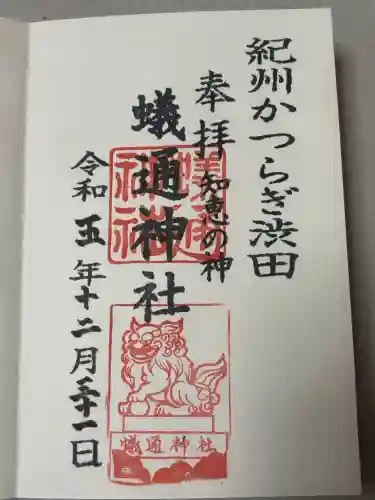 紀州かつらぎ渋田
奉拝
知恵の神
蟻通神社
蟻通神社
令和五年十二月三十一日
蟻通神社